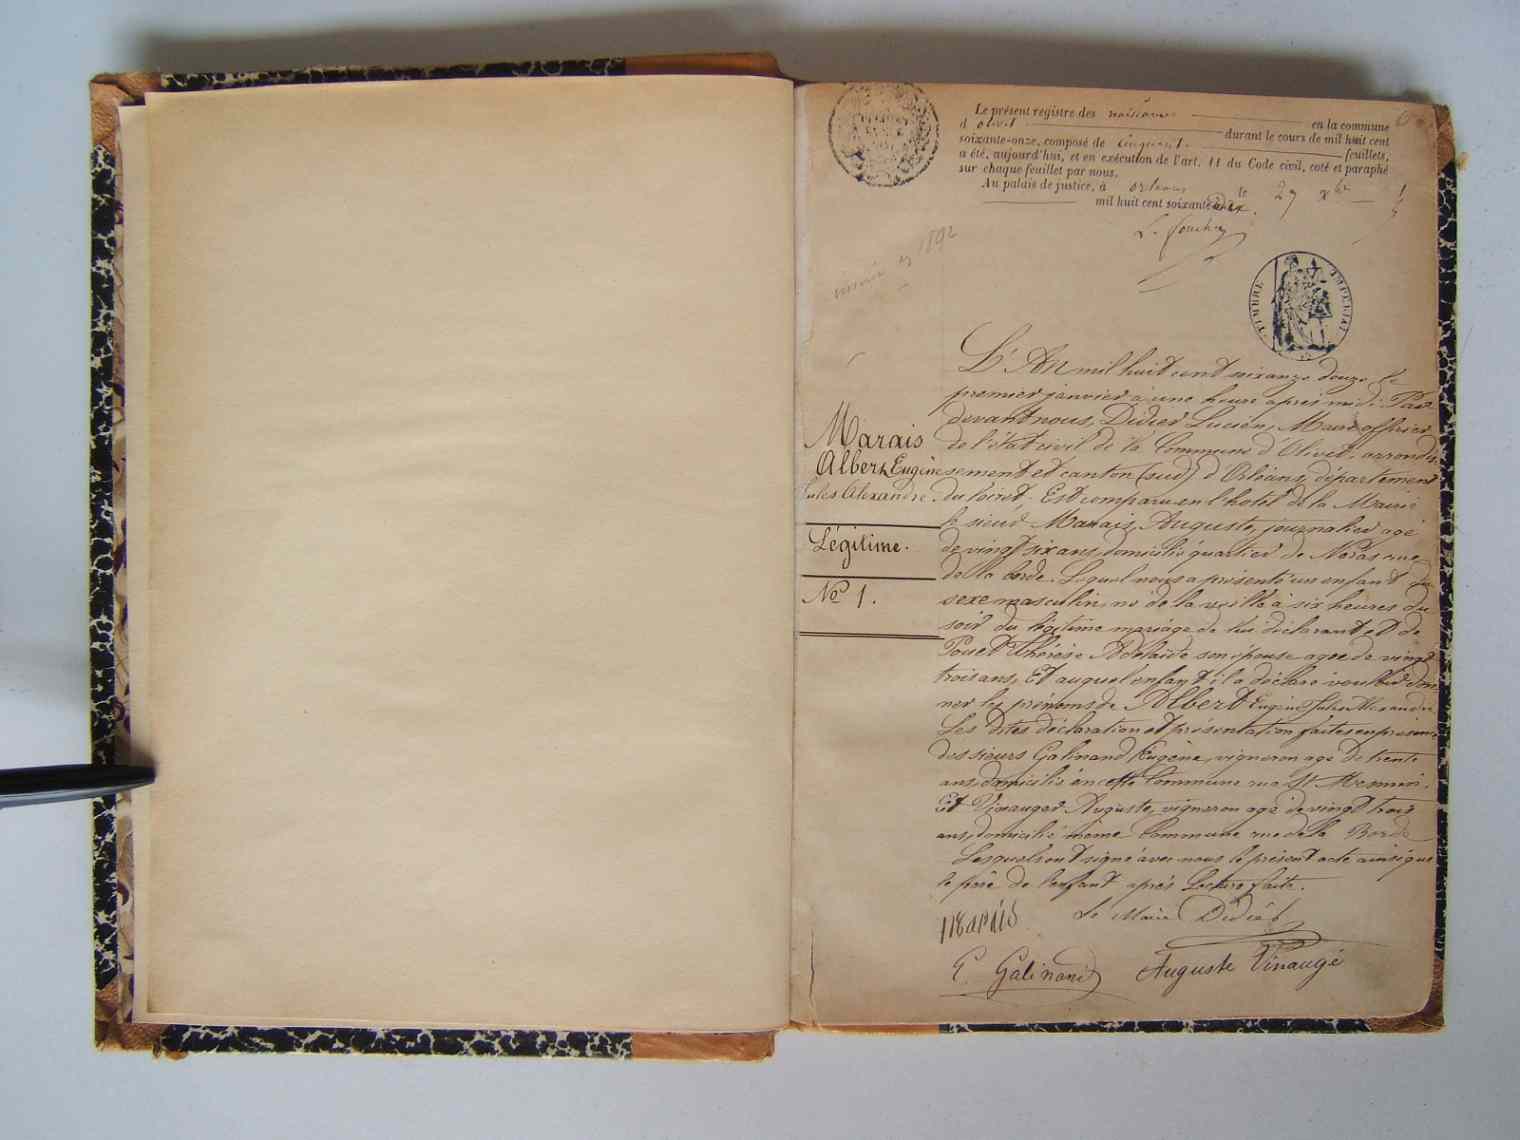 Le présent registre des naissances en la commune
d'Olivet durant le cours de mil huit cent
soixante-onze, composé de cinquante feuillets,
a été, aujourd'hui, et en exécution de l'art. 41 du Code civil, coté et paraphé
sur chaque feuillet par nous.
Au palais de justice, à Orléans le 27 Xbre
mil huit cent soixante
1892
TIMBRE IMPÉRIAL
L'An mil huit cent soixante douze le
premier janvier à une heure après midi. Par
devant nous, Didier Lucien, Maire officier
de l'état civil de la Commune d'Olivet, arrondis
sement et canton (sud) d'Orléans, département
du loiret. Est comparu en l'hotel de la Mairie
le sieur Marais Auguste, journalier agé
de vingt six ans, domicilié quartier de Noras rue
de la borde. Lequel nous a présenté un enfant du
sexe masculin, né de la veille à six heures du
soir du légitime mariage de lui déclarant et de
Thérèse Adelaïde son épouse agée de vingt
trois ans, Et auquel enfant il a déclaré vouloir don
ner les prénoms de Albert Eugène Jules Alexandre
Les dites déclaration et présentation faites en présence
des sieurs Galinand Eugène, vigneron agé de trente
ans, domicilié en cette Commune rue St Mesmin.
Et Vinauger Auguste, vigneron agé de vingt trois
ans, domicilié même Commune rue de la Borde
Lesquels ont signé avec nous le présent acte ainsi que
le père de l'enfant après Lecture faite.
Marais
Albert Eugène
Jules Alexandre.
Légitime.
No 1.
Marais Le Maire Didier
E. Galinand Auguste Vinaugé